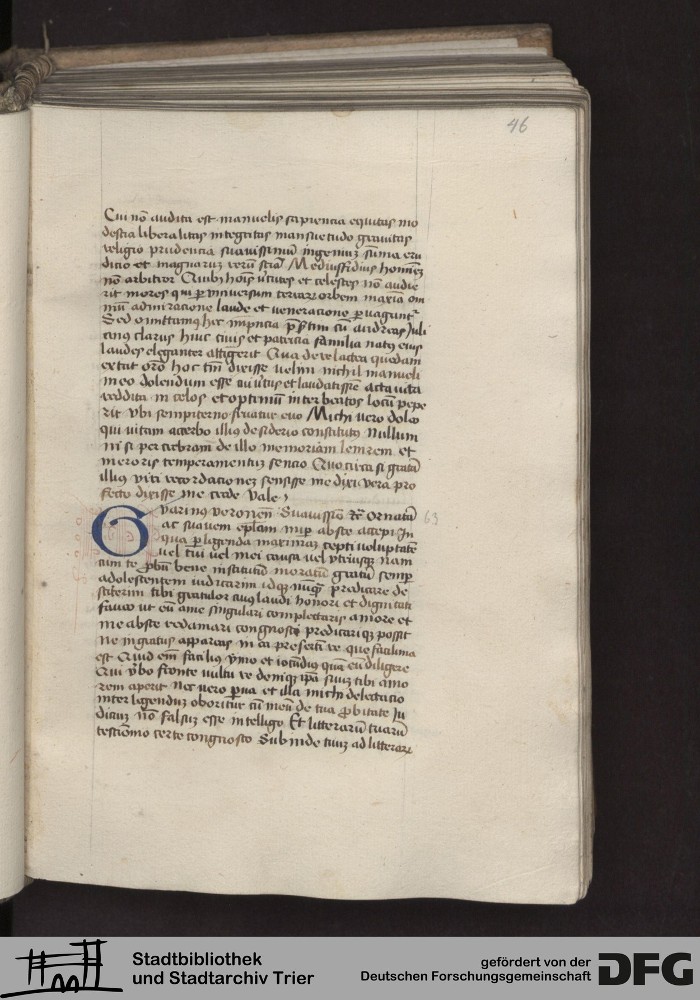 46
Cui nō audita est manuelis sapiencia equitas mo
destia liberalitas integritas mansuetudo grauitas
religio prudencia suauissimū ingeniuz sūma eru
dicio et magnaruz rerū sciā Mediussidius hominē
nō arbitror Cui hoīs v̓tutes et celestes nō audie
rit mores qui p vniuersum terrarꝝ orbem maxīa om
niū admiracione laude et veneracione puagantᷓ
Sed omittamus hec imp̄ncia p̄sertim cū andreas Juli
anus clarus huic ciuis et patricia familia natus eius
laudes eleganter attigerit Qua de re lactea quedam
extat orō hoc tm̄ dixisse velim nichil manueli
meo dolendum esse cui v̓tus et laudatissīe acta vita
reddita in celos et optimū inter beatos locū pepe
rit vbi sempiterno fruatur euo Michi vero doleo
qui vitam acerbo illius desiderio constitutus nullum
nisi per crebram de illo memoriam leuorem et
meroris temperamentuz sencio Quocirca si gratā
illius viri recordacionez sensisse me dixi vera pro
fecto dixisse me crede vale
Gvarinus veronen̄ Suauissīo Ornatā 63
ac suauem epl̄am nup abs te accepi In
qua plegenda maximaz cepi voluptatē
vel tui vel mei causa vel vtriusqꝫ nam
cum te pbū bene institutū moratū gratū semp
adolescentem iudicarim idqꝫ nuqꝫ predicare de
stiterim tibi gratulor tuoqꝫ laudi honori et dignitati
faueo vt eū ame singulari complectaris amore et
me abs te redamari congnosci predicariqꝫ possit
Ne ingratus appareas in ea presertī re que facilima
est Quid em̄ facilius ymo et iocūdius quā eū diligere
Qui v̓bo fronte vultu re deniqꝫ ip̄a suuz tibi amo
rem aperit Nec vero pua et illa michi delectacio
inter legenduz oboritur cū meū de tua pbitate Ju
dicuz nō falsuz esse intelligo Et litterarū tuarū
testiōmo certe congnosco Subinde tuuz ad litterarꝝ
Stadtbibliothek
und Stadtarchiv Trier
gefördert von der
Deutschen Forschungsgemeinschaft
DFG